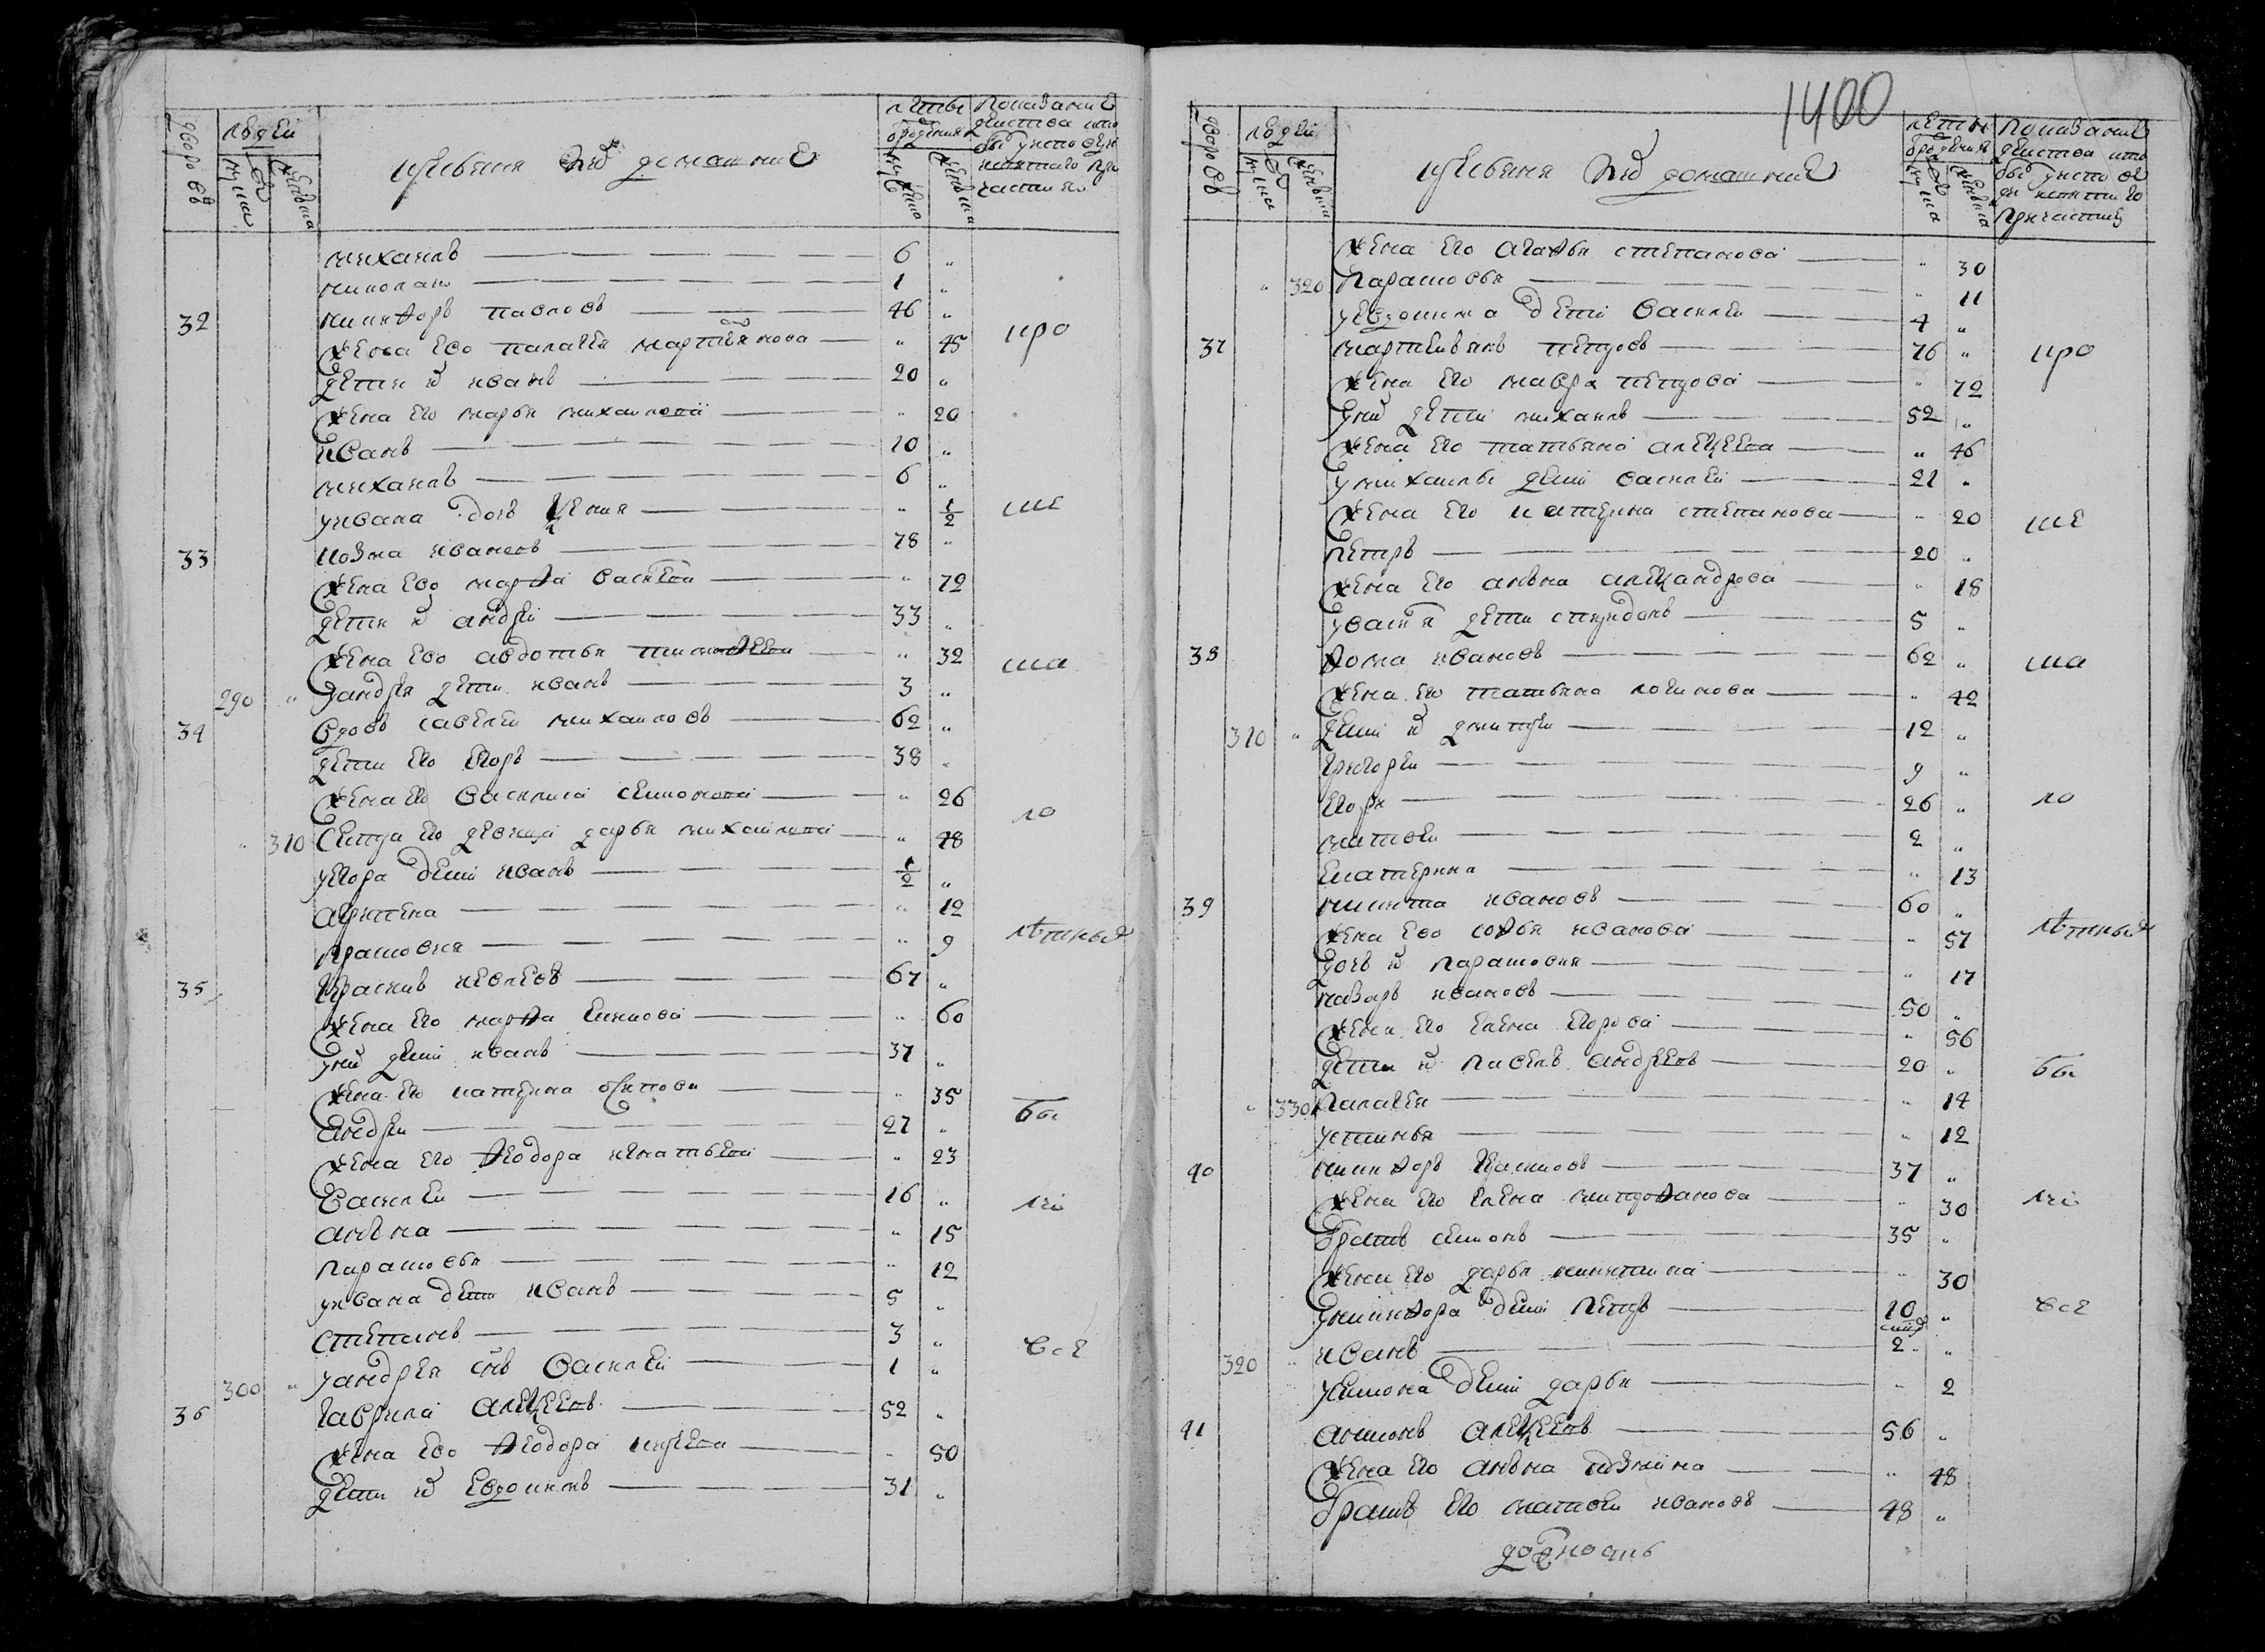 дворовъ
людей
мужеска
женска
крестьяня и ихъ домашние
лѣта от рождения
мужеска
женска
Показание действа кто былъ у исповеди и святаго причастия
михаилъ 6 „
николаи 1 „
32 никифоръ павловъ 46 „
жена ево палагея мартинова „ 45
дети их иванъ 20 „
жена его марья михаилова „ 20
иванъ 10 „
михаилъ 6 „
у ивана дочь ксения „ 1/2
33 козма ивановъ 78 „
жена ево марфа васильева „ 72
дети их андреи 33 „
жена ево авдотья тимофеева „ 32
290 „ у андрея дети иванъ 3 „
34 вдовъ савелеи михаиловъ 62 „
дети его егоръ 38 „
жена его василиса симонова „ 26
„ 310 сестра его девица дарья михаилова „ 48
у егора дети иванъ 1/2 „
агрипена „ 12
прасковия „ 9
35 герасимъ иевлевъ 67 „
жена его марфа екимова „ 60
у них дети иванъ 37 „
жена его катерина осипова „ 35
андреи 27 „
жена его феодора игнатьева „ 23
василеи 16 „
анъна „ 15
парасковья „ 12
у ивана дети иванъ 5 „
степанъ 3 „
300 „ у андрея сынъ василеи 1 „
36 гаврила алексеевъ 52 „
жена ево феодора киреева „ 50
дети их евдокимъ 31 „
про
ше
ша
ло
лѣтныя
бы
ли
все
1400
дворовъ
людей
мужеска
женска
крестьяня и ихъ домашние
лѣта от рождения
мужеска
женска
Показание действа кто былъ у исповеди и святаго причастия
жена его агафья степанова „ 30
„ 320 парасковья „ 11
у евдокима дети василеи 4 „
37 мартемьянъ петровъ 76 „
жена его мавра петрова „ 72
у них дети михаилъ 52 „
жена его татьяна алексеева „ 46
у михаилы дети василеи 21 „
жена его катерина степанова „ 20
петръ 20 „
жена его анъна александрова „ 18
у василя дети спиридонъ 5 „
38 фома ивановъ 62 „
жена его татьяна логинова „ 42
310 „ дети их дмитреи 12 „
григореи 9 „
егоръ 26 „
матвеи 2 „
екатерина „ 13
39 никита ивановъ 60 „
жена ево софья иванова „ 57
дочь их парасковия „ 17
назаръ ивановъ 50 „
жена его елена егорова „ 56
дети их павелъ андреевъ 20 „
„ 330 палагея „ 14
устинья „ 12
40 никифоръ герасимовъ 37 „
жена его елена митрофанова „ 30
братъ симонъ 35 „
жена его дарья никитина „ 30
у никифора дети петръ 10 „
320 „ иванъ 2 „
у симона дети дарья „ 2
41 антонъ алексеевъ 56 „
жена его анъна козмина „ 48
братъ его матвеи ивановъ 48 „
про
ше
ша
ло
лѣтныя
бы
ли
все